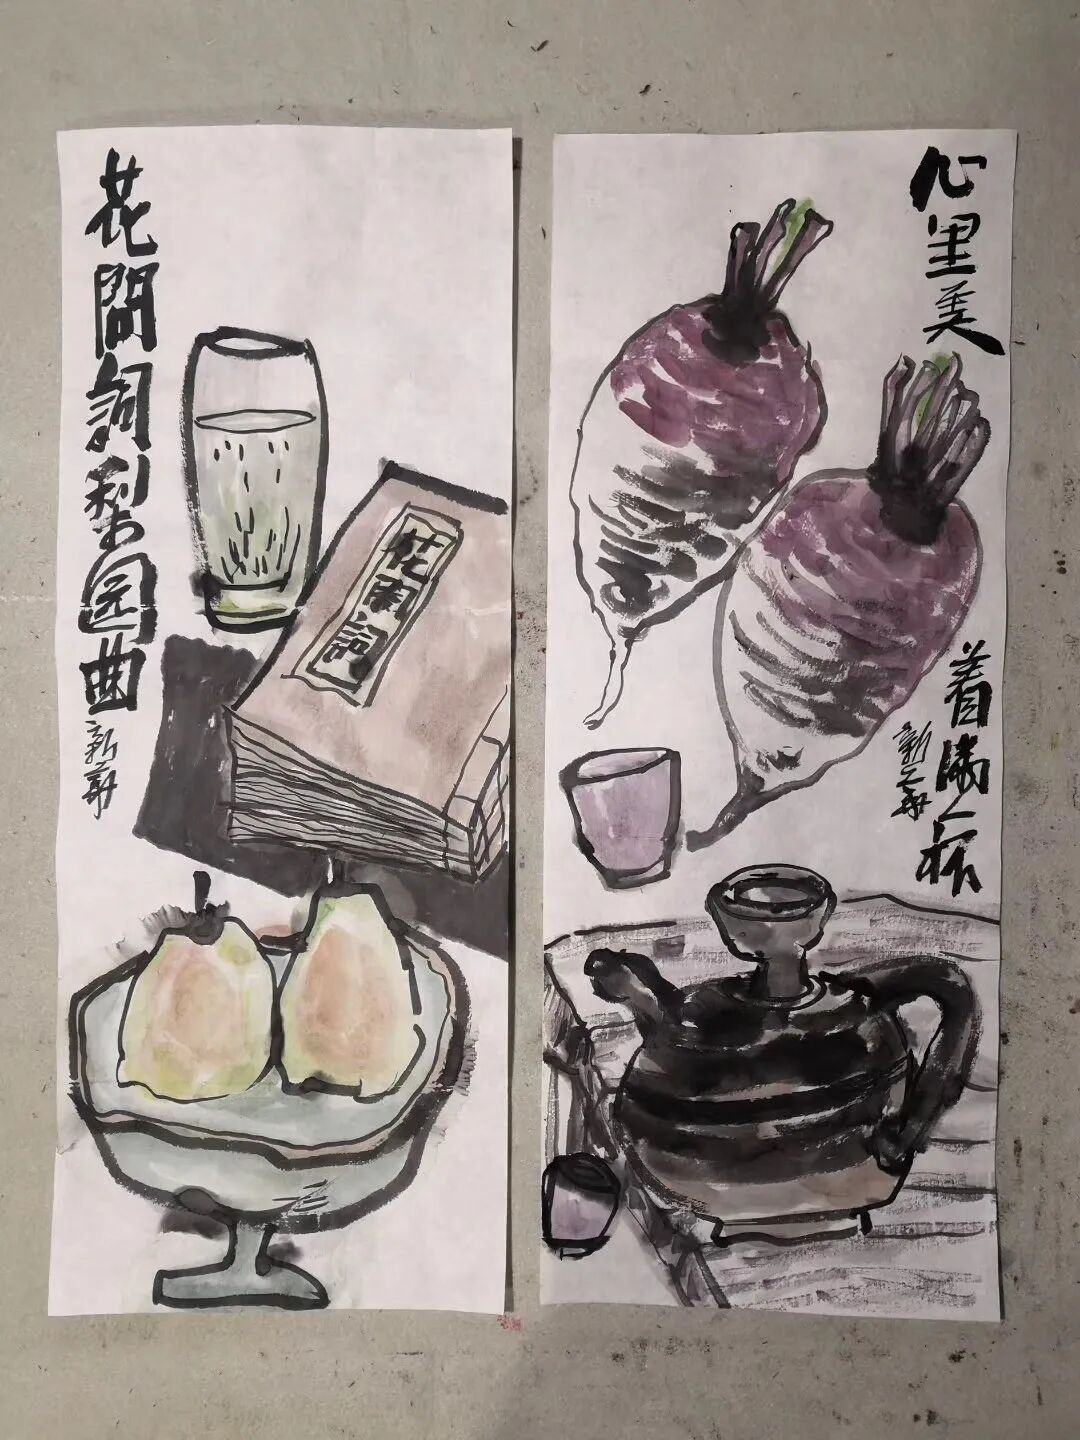 花間詞梨园曲
新華
花間詞
心里美
着满杯
新華